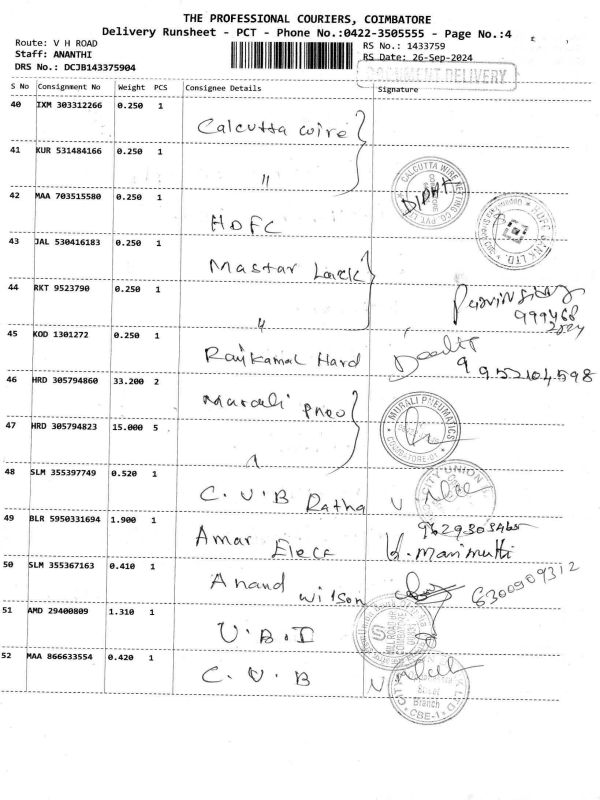 THE PROFESSIONAL COURIERS, COIMBATORE
Delivery Runsheet - PCT - Phone No.:0422-3505555 - Page No.:4
Route: V H ROAD
RS No.: 1433759
Staff: ANANTHI
RS Date: 26-Sep-2024
DRS No.: DCJB143375904
DOCUMENT DELIVERY
S No Consignment No Weight PCS Consignee Details Signature
40 IXM 303312266 0.250 1
Calcutta wire
41 KUR 531484166 0.250 1
"
CALCUTTA WIRE NETTING CO. PVT. LTD.
42 MAA 703515580 0.250 1
HDFC
HDFC BANK LTD.
43 JAL 530416183 0.250 1
Mastar Lack
44 RKT 9523790 0.250 1
"
999468
2024
45 KOD 1301272 0.250 1
Rajkamal Hard
9952104598
46 HRD 305794860 33.200 2
Murali pneu
47 HRD 305794823 15.000 5
"
MURALI PNEUMATICS
COIMBATORE-01
48 SLM 355397749 0.520 1
C.U.B Ratha
CITY UNION
49 BLR 5950331694 1.900 1
9629303465
Amar Elecr
50 SLM 355367163 0.410 1
Anand Wilson
6300909312
51 AMD 29400809 1.310 1
U.B.I
52 MAA 866633554 0.420 1
C.U.B
CITY
LTD
Branch
CBE-1